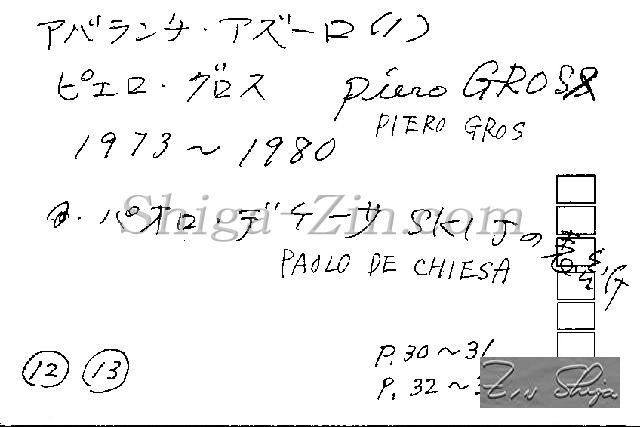 アバランチ・アズーロ(1)
ピエロ・グロス piero GROS
PIERO GROS
1973〜1980
パオロ・デキーサ SKI Jの
Shiga-Zin.com
PAOLO DE CHIESA
P.30〜31
12 13 P.32〜
Zin Shiga